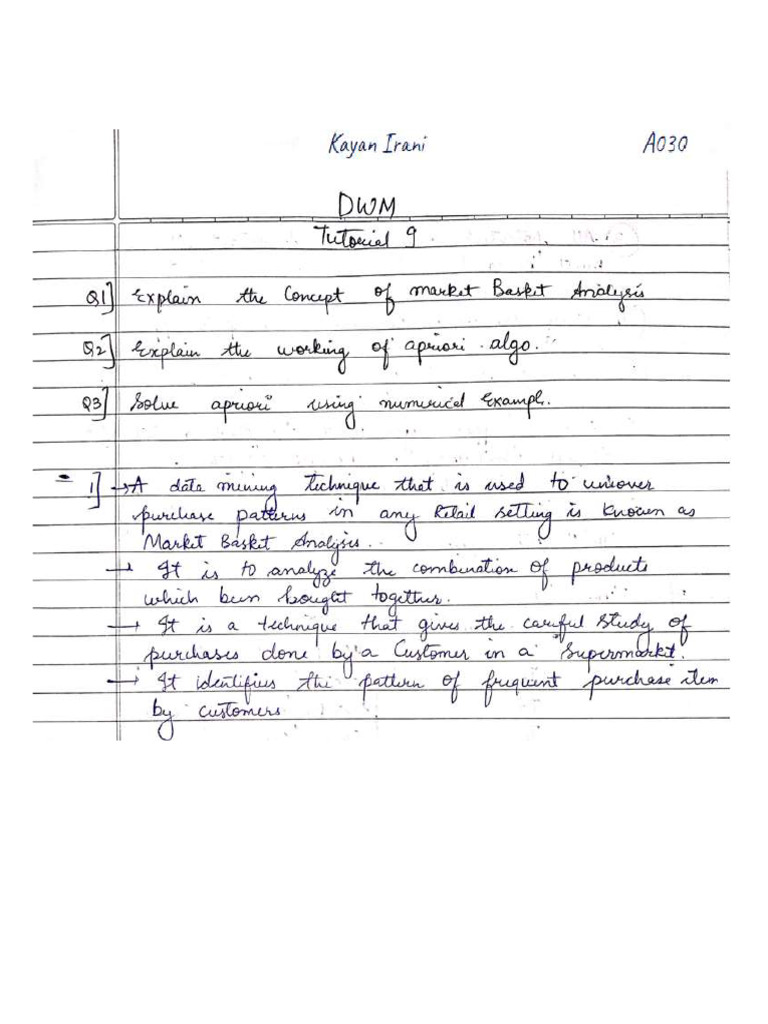 Kayan Irani A030
DWM
Tutorial 9
Q1] Explain the Concept of market Basket Analysis
Q2] Explain the working of apriori algo.
Q3] Solve apriori using numerical Exampl.
1] → A data mining technique that is used to uncover
purchase patterns in any Retail setting is known as
Market Basket Analysis.
→ It is to analyze the combination of products
which been bought together.
→ It is a technique that gives the careful study of
purchases done by a Customer in a Supermarkt.
→ It identifies the pattern of frequent purchase item
by customers